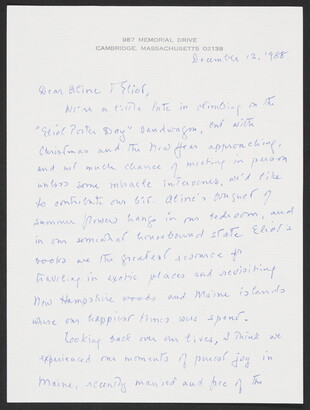 987 MEMORIAL DRIVE
CAMBRIDGE, MASSACHUSETTS 02138
December 12, 1988
Dear Aline & Eliot,
We're a little late in climbing on the
"Eliot Porter Day" bandwagon, but with
Christmas and the New Year approaching,
and not much chance of meeting in person
unless some miracle intervenes, we'd like
to contribute our bit. Aline's bouquet of
summer flowers hangs in our bedroom, and
in our somewhat housebound state Eliot's
books are the greatest resource for
traveling in exotic places and revisiting
New Hampshire woods and Maine islands
where our happiest times were spent.
Looking back over our lives, I think we
experienced our moments of purest joy in
Maine, recently married and free of the